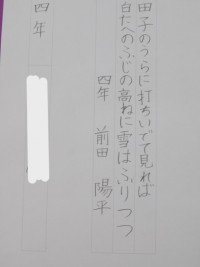 田子のうらに打ちいでて見れば
白たへのふじの高ねに雪はふりつつ
四年 前田 陽平
四年